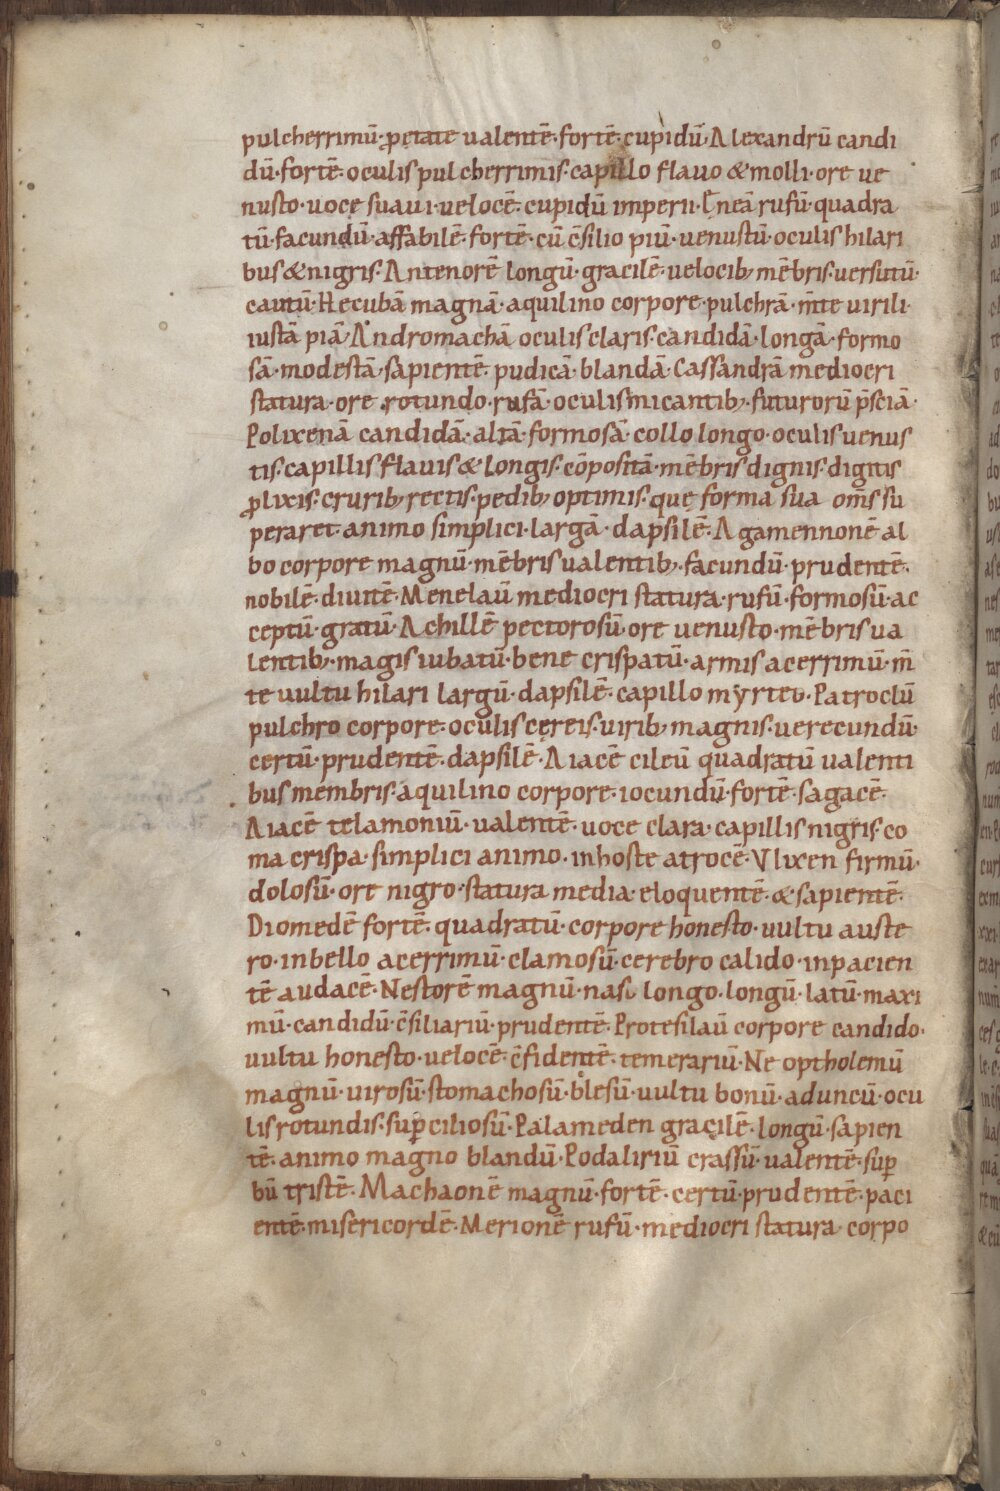 pulcherrimū· ꝓ ętate ualentē· fortē· cupidū· Alexandrū candi
dū· fortē· oculis pulcherrimis· capillo flauo & molli· ore ue
nusto· uoce suaui· uelocē· cupidū imperii· Ęneā rufū· quadra
tū· facundū· affabilē· fortē· cū c̄silio piū· uenustū· oculis hilari
bus & nigris· Antenorē longū· gracilē· uelocib; mēbris· uersutū·
cautū· Hecubā magnā· aquilino corpore· pulchrā· m̄te uirili·
iustā piā· Andromachā oculis claris· candidā· longā· formo
sā· modestā· sapientē· pudicā· blandā· Cassandrā mediocri
statura· ore rotundo· rufā· oculis micantib;· futurorū p̄sciā·
Polixenā candidā· altā· formosā· collo longo· oculis uenus
tis· capillis flauis & longis· cōpositā· mēbris dignis· digitis
ꝓlixis· crurib; rectis· pedib; optimis· quę forma sua om̄s su
peraret· animo simplici· largā· dapsilē· Agamennonē al
bo corpore magnū· mēbris ualentib;· facundū· prudentē·
nobilē· diuitē· Menelaū mediocri statura· rufū· formosū· ac
ceptū· gratū· Achillē pectorosū· ore uenusto· mēbris ua
lentib;· magis iubatū· bene crispatū· armis acerrimū· m̄
te uultu hilari largū· dapsilē· capillo myrteo· Patroclū
pulchro corpore· oculis cęreis· uirib; magnis· uerecundū·
certū· prudentē· dapsilē· Aiacē cileū quadratū ualenti
bus membris· aquilino corpore· iocundū· fortē· sagacē·
Aiacē telamoniū· ualentē· uoce clara· capillis nigris· co
ma crispa· simplici animo· in hoste atrocē· Vlixen firmū·
dolosū· ore nigro· statura media· eloquentē· & sapientē·
Diomedē fortē· quadratū· corpore honesto· uultu auste
ro· in bello acerrimū· clamosū· cerebro calido· inpacien
tē audacē· Nestorē magnū· naso longo· longū· latū· maxi
mū· candidū· c̄siliariū· prudentē· Protesilaū corpore candido·
uultu honesto· uelocē· c̄fidentē· temerariū· Neoptholemū
magnū· uirosū· stomachosū· blesū· uultu bonū· aduncū· ocu
lis rotundis· suꝑciliosū· Palameden gracilē· longū· sapien
tē· animo magno blandū· Podaliriū crassū· ualentē· suꝑ
bū tristē· Machaonē magnū· fortē· certū· prudentē· paci
entē· misericordē· Merionē rufū· mediocri statura· corpo